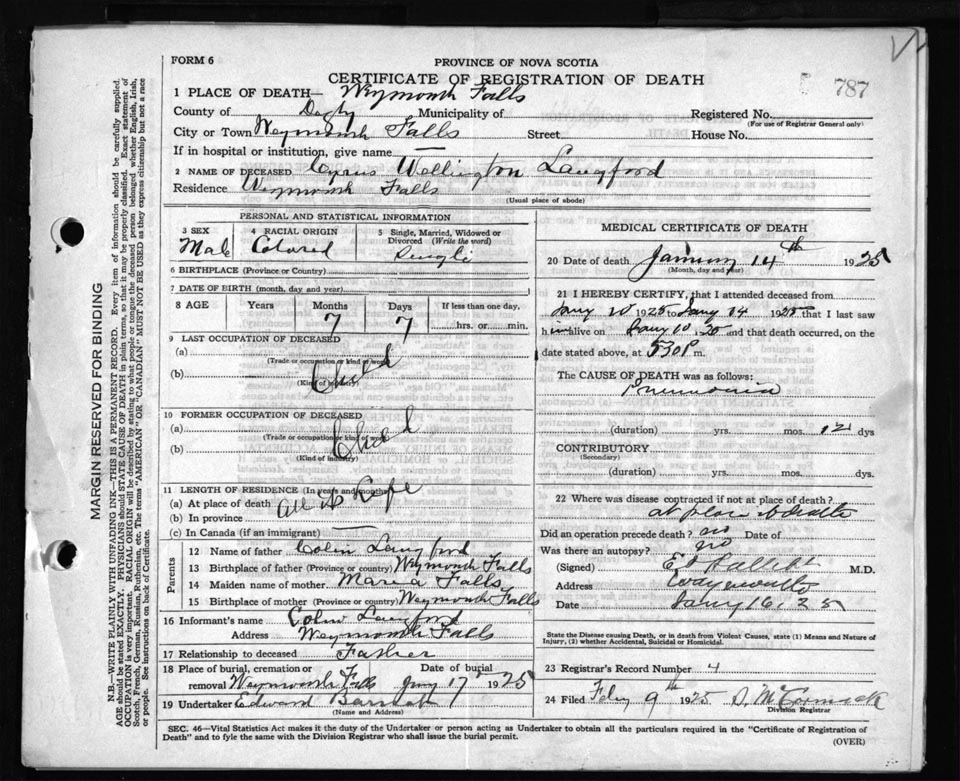 FORM 6
PROVINCE OF NOVA SCOTIA
CERTIFICATE OF REGISTRATION OF DEATH
787
1 PLACE OF DEATH— Weymouth Falls
County of Digby Municipality of
Registered No.
(For use of Registrar General only)
City or Town Weymouth Falls Street House No.
If in hospital or institution, give name —
2 NAME OF DECEASED Cyrus Wellington Langford
Residence Weymouth Falls
(Usual place of abode)
PERSONAL AND STATISTICAL INFORMATION
3 SEX
Male
4 RACIAL ORIGIN
Colored
5 Single, Married, Widowed or Divorced (Write the word)
Single
6 BIRTHPLACE (Province or Country)
7 DATE OF BIRTH (month, day, and year)
8 AGE Years Months Days If less than one day,
7 7 hrs. or min.
9 LAST OCCUPATION OF DECEASED
(a)
(Trade or occupation or kind of work)
(b) Child
(Kind of Industry)
10 FORMER OCCUPATION OF DECEASED
(a)
(Trade or occupation or kind of work)
(b) Child
(Kind of Industry)
11 LENGTH OF RESIDENCE (In years and months)
(a) At place of death All is Life
(b) In province
(c) In Canada (if an immigrant) —
Parents
12 Name of father Colin Langford
13 Birthplace of father (Province or country) Weymouth Falls
14 Maiden name of mother Maria Falls
15 Birthplace of mother (Province or country) Weymouth Falls
16 Informant's name Colin Langford
Address Weymouth Falls
17 Relationship to deceased Father
18 Place of burial, cremation or removal Weymouth Falls Date of burial Jany 17 1925
19 Undertaker Edward
(Name and Address)
MEDICAL CERTIFICATE OF DEATH
20 Date of death January 14th 1925
(Month, day and year)
21 I HEREBY CERTIFY, that I attended deceased from
Jany 10 1925 to Jany 14 1925 that I last saw
him alive on Jany 10, 25 and that death occurred, on the
date stated above, at 530 P m.
The CAUSE OF DEATH was as follows:
Pneumonia
(duration) yrs. mos. 12 dys
CONTRIBUTORY
(Secondary)
(duration) yrs. mos. dys.
22 Where was disease contracted if not at place of death?
at place of death
Did an operation precede death? no Date of
Was there an autopsy? no
(Signed) M.D.
Address Weymouth
Date Jany 16, 25
State the Disease Causing Death, or in death from Violent Causes, state (1) Means and Nature of Injury, (2) whether Accidental, Suicidal or Homicidal.
23 Registrar's Record Number 4
24 Filed Feby 9th 1925 D. McCormick
Division Registrar
SEC. 46—Vital Statistics Act makes it the duty of the Undertaker or person acting as Undertaker to obtain all the particulars required in the "Certificate of Registration of
Death" and to fyle the same with the Division Registrar who shall issue the burial permit.
(OVER)
MARGIN RESERVED FOR BINDING
N.B.—WRITE PLAINLY WITH UNFADING INK—THIS IS A PERMANENT RECORD. Every item of information should be carefully supplied.
AGE should be stated EXACTLY. PHYSICIANS should STATE CAUSE OF DEATH in plain terms, so that it may be properly classified. Exact statement of
OCCUPATION is very important. RACIAL ORIGIN will be described by stating to what people or tongue the deceased person belonged whether English, Irish,
Scotch, French, German, Russian, Ruthenian, etc. The terms "AMERICAN" OR "CANADIAN" MUST NOT BE USED as they express citizenship but not a race
or people. See instructions on back of Certificate.